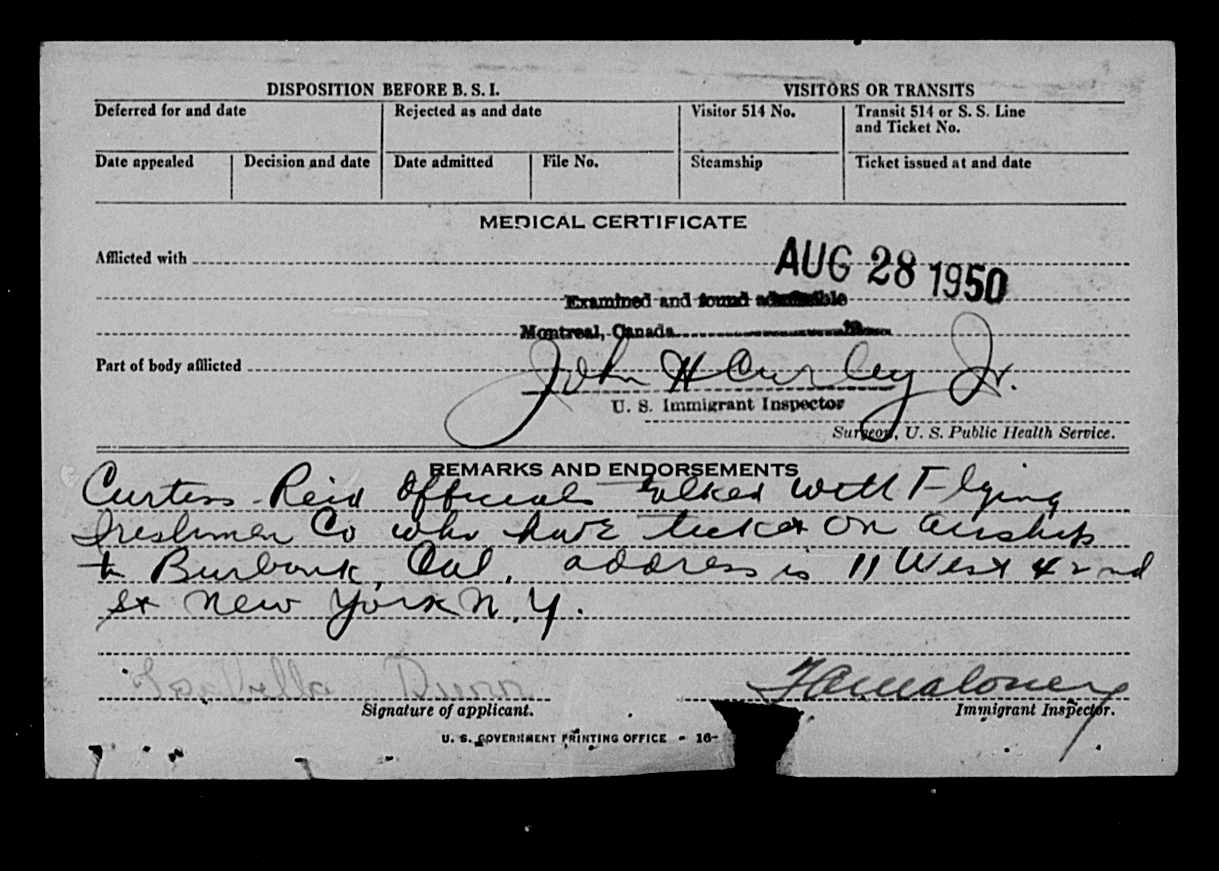 DISPOSITION BEFORE B. S. I. VISITORS OR TRANSITS
Deferred for and date Rejected as and date Visitor 514 No. Transit 514 or S. S. Line and Ticket No.
Date appealed Decision and date Date admitted File No. Steamship Ticket issued at and date
MEDICAL CERTIFICATE
Afflicted with
AUG 28 1950
Examined and found admissible
Montreal, Canada 19
Part of body afflicted
John H Curley Jr.
U. S. Immigrant Inspector
Surgeon, U. S. Public Health Service.
REMARKS AND ENDORSEMENTS
Curtiss-Reid Officials talked with Flying
Irishman Co who have ticket on airship
to Burbank, Cal. address is 11 West 42nd
St New York N.Y.
Isabella Dunn F C Maloney
Signature of applicant. Immigrant Inspector.
U. S. GOVERNMENT PRINTING OFFICE - 16-